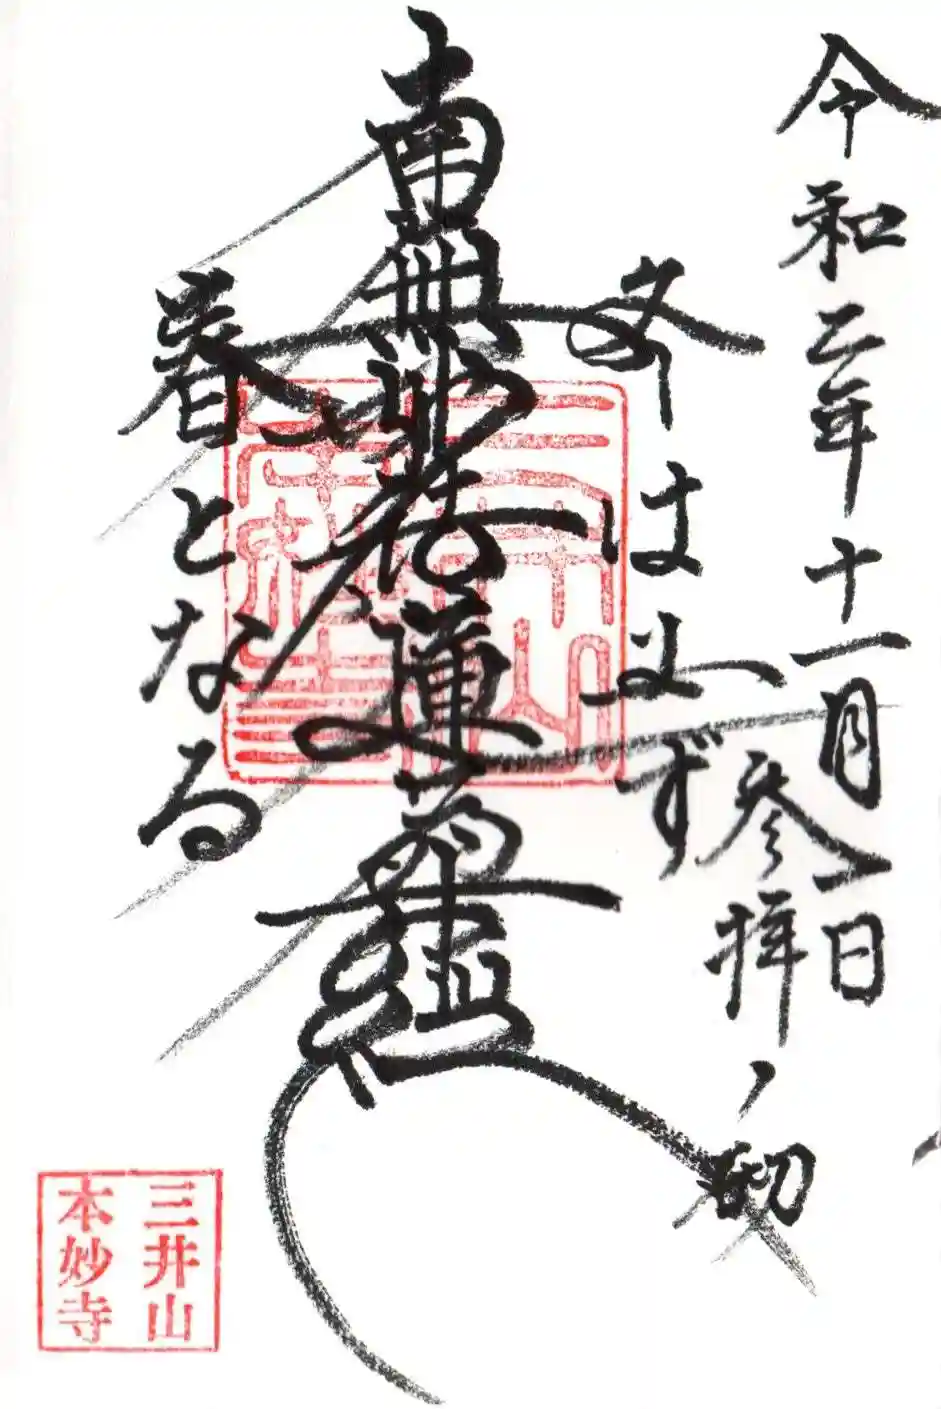 令和二年十一月一日
参拝ノ砌
冬は必ず
南無妙法蓮華経
春となる
三井山
本妙寺